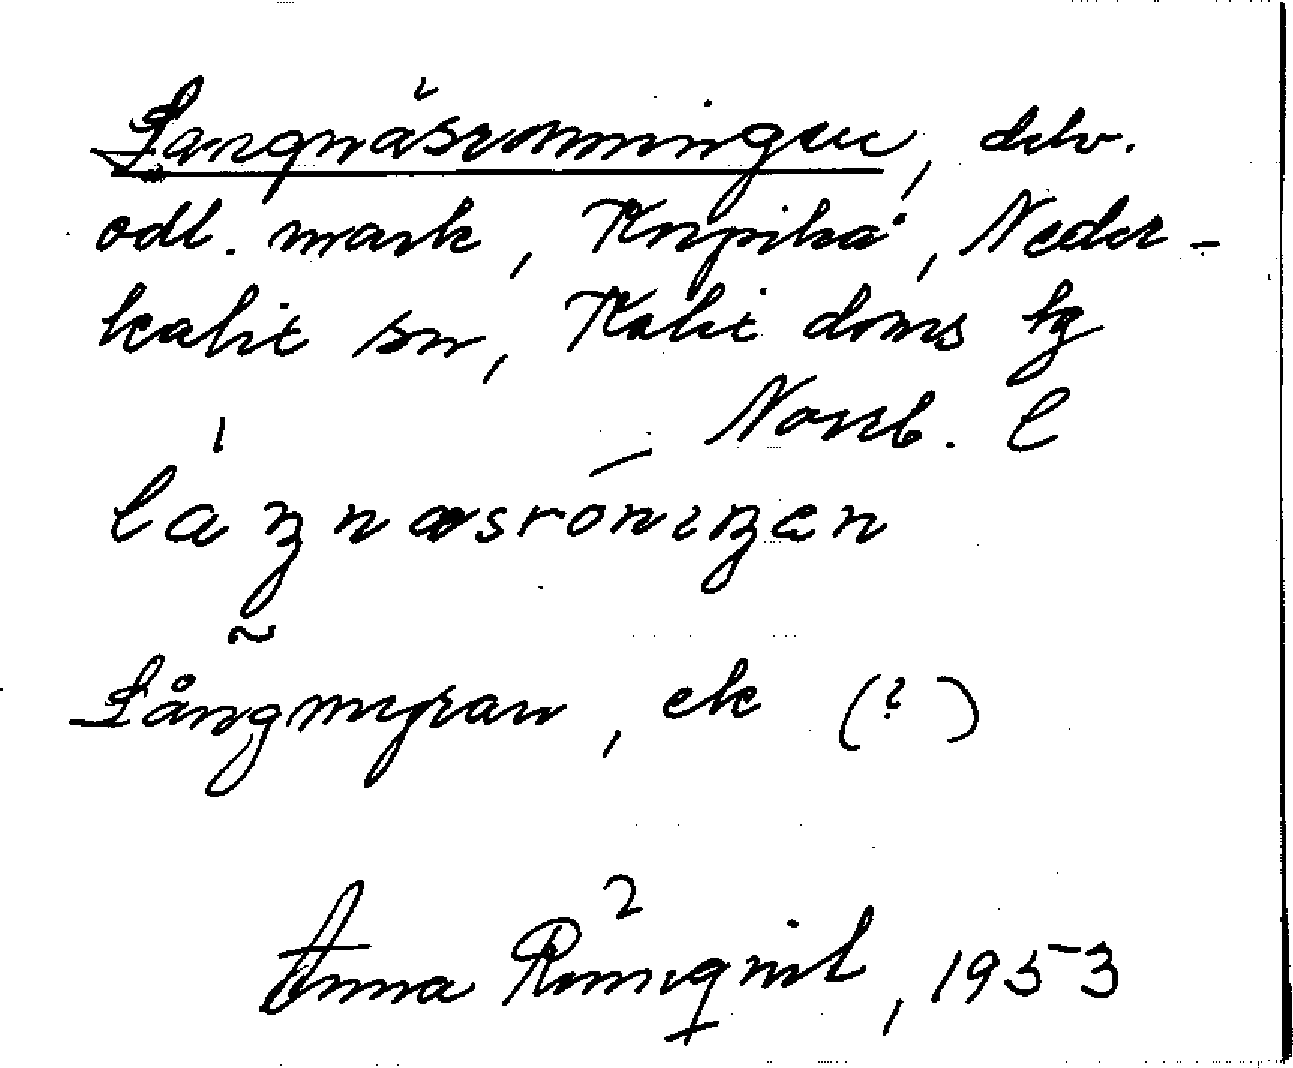 Långnäsrönningen, delv.
odl. mark, Korpikå, Neder-
kalix sn, Kalix doms tg
Norrb. l
laŋnæsröniŋen
Långmyran, ek (?)
Anna Rönnqvist, 1953